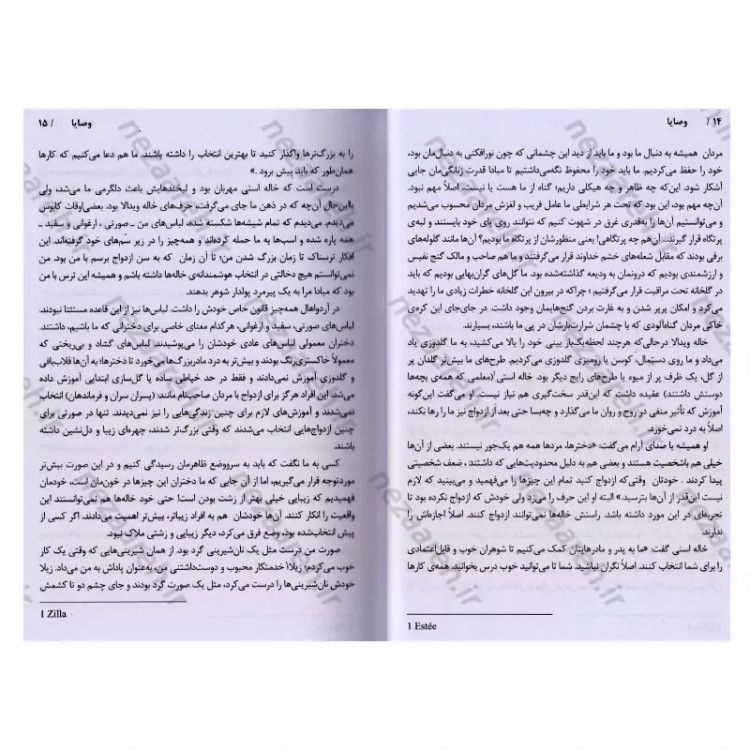 ۱۴ / وصایا
مردان همیشه به دنبال ما بود و ما باید از دید این چشمانی که چون نورافکنی به دنبال‌مان بود،
خود را حفظ می‌کردیم. ما باید خود را محفوظ نگه‌می‌داشتیم تا مبادا قدرت زنانگی‌مان جایی
آشکار شود. این‌که چه ظاهر و چه هیکلی داریم؛ گناه از ما هست یا نیست، اصلاً مهم نبود.
آن‌چه مهم بود، این بود که تحت هر شرایطی ما عامل فریب و لغزش مردان محسوب می‌شدیم
و می‌توانستیم آن‌ها را به‌قدری غرق در شهوت کنیم که نتوانند روی پای خود بایستند و لبه‌ی
پرتگاه قرار گیرند. آن‌هم چه پرتگاهی! یعنی منظورشان از پرتگاه ما بودیم؟ آن‌ها مانند گلوله‌های
برفی بودند که مقابل شعله‌های خشم خداوند قرار می‌گرفتند و ما هم صاحب و مالک گنج نفیس
و ارزشمندی بودیم که درونمان به ودیعه گذاشته‌شده بود. ما گل‌های گران‌بهایی بودیم که باید
در گلخانه تحت مراقبت قرار می‌گرفتیم؛ چراکه در بیرون این گلخانه خطرات زیادی ما را تهدید
می‌کرد و امکان پرپر شدن و به غارت بردن گنج‌هایمان وجود داشت. در جای‌جای این کره‌ی
خاکی مردان گناه‌آلودی که با چشمان شرارت‌بارشان در پی ما باشند، بسیارند.
خاله ویدلا درحالی‌که هرچند لحظه‌یک‌بار بینی خود را بالا می‌کشید، به ما گلدوزی یاد
می‌داد و ما روی دستمال، کوسن یا رومیزی گلدوزی می‌کردیم. طرح‌های ما بیش‌تر گلدان پر
از گل، یک ظرف پر از میوه یا طرح‌های رایج دیگر بود. خاله استی۱(معلمی که همه‌ی بچه‌ها
دوستش داشتند) عقیده داشت که این‌قدر سخت‌گیری هم نیاز نیست. او می‌گفت این‌گونه
آموزش که تأثیر منفی در روح و روان ما می‌گذارد و چه‌بسا حتی بعد از ازدواج نیز ما را رها نکند،
اصلاً به درد نمی‌خورد.
او همیشه با صدای آرام می‌گفت: «دخترها، مردها همه هم یک‌جور نیستند. بعضی از آن‌ها
خیلی هم باشخصیت هستند و بعضی هم به دلیل محدودیت‌هایی که داشتند ، ضعف شخصیتی
پیدا کردند . خودتان وقتی‌که ازدواج کنید تمام این چیزها را می‌فهمید و می‌بینید که لازم
نیست این‌قدر از آن‌ها بترسید.» البته او این حرف را می‌زد ولی خودش که ازدواج نکرده بود تا
تجربه‌ای در این مورد داشته باشد. راستش خاله‌ها نمی‌توانند ازدواج کنند. اصلاً اجازه‌اش را
ندارند.
خاله استی گفت: «ما به پدر و مادرهایتان کمک می‌کنیم تا شوهران خوب و قابل‌اعتمادی
را برای شما انتخاب کنند. اصلاً نگران نباشید. شما تا می‌توانید خوب درس بخوانید، همه‌ی کارها
1 Estée
وصایا / ۱۵
را به بزرگ‌ترها واگذار کنید تا بهترین انتخاب را داشته باشند. ما هم دعا می‌کنیم که کارها
همان‌طور که باید پیش برود .»
درست است که خاله استی مهربان بود و لبخندهایش باعث دلگرمی ما می‌شد، ولی
بااین‌حال آن‌چه که در ذهن ما جای می‌گرفت، حرف‌های خاله ویدالا بود. بعضی‌اوقات کابوس
می‌دیدم. می‌دیدم که تمام شیشه‌ها شکسته شده، لباس‌های من ـ صورتی ، ارغوانی و سفید ـ
همه پاره شده و اسب‌ها به ما حمله کرده‌اند و همه‌چیز را در زیر سم‌های خود گرفته‌اند. این
افکار ترسناک تا زمان بزرگ شدن من؛ تا آن زمان که به سن ازدواج برسم با من بود. من
نمی‌توانستم هیچ دخالتی در انتخاب هوشمندانه‌ی خاله‌ها داشته باشم و همیشه این ترس با من
بود که مبادا مرا به یک پیرمرد پولدار شوهر بدهند.
در آردواهال همه‌چیز قانون خاص خودش را داشت. لباس‌ها نیز از این قاعده مستثنا نبودند.
لباس‌های صورتی، سفید و ارغوانی، هرکدام معنای خاصی برای دخترانی که ما باشیم، داشتند.
دختران معمولی لباس‌های عادی خودشان را می‌پوشیدند. لباس‌های گشاد و بی‌ریختی که
معمولاً خاکستری‌رنگ بودند و بیش‌تر به درد مادربزرگ‌ها می‌خورد تا دخترها؛ به آن‌ها قلاب‌بافی
و گلدوزی آموزش نمی‌دادند و فقط در حد خیاطی ساده یا گل‌سازی ابتدایی آموزش داده
می‌شد. این افراد هرگز برای ازدواج با مردان صاحب‌نام مانند؛ (پسران سران و فرماندهان) انتخاب
نمی‌شدند و آموزش‌های لازم برای چنین زندگی‌هایی را نیز نمی‌دیدند. تنها در صورتی برای
چنین ازدواج‌هایی انتخاب می‌شدند که وقتی بزرگ‌تر شدند، چهره‌ای زیبا و دل‌نشین داشته
باشند.
کسی به ما نگفت که باید به سرووضع ظاهرمان رسیدگی کنیم و در این صورت بیش‌تر
موردتوجه قرار می‌گیریم، اما از آن جایی که ما دختران این چیزها در خون‌مان است، خودمان
فهمیدیم که زیبایی خیلی بهتر از زشت بودن است! حتی خود خاله‌ها هم نمی‌توانستند این
واقعیت را انکار کنند. آن‌ها خودشان هم به افراد زیباتر، بیش‌تر اهمیت می‌دادند. اگر کسی از
پیش انتخاب‌شده بود، وضع فرق می‌کرد، دیگر زیبایی و زشتی ملاک نبود.
صورت من درست مثل یک نان‌شیرینی گرد بود. از همان شیرینی‌هایی که وقتی یک کار
خوب می‌کردم؛ زیلا۱ خدمتکار محبوب و دوست‌داشتنی من، به‌عنوان پاداش به من می‌داد. زیلا
خودش نان‌شیرینی‌ها را درست می‌کرد، مثل یک صورت گرد بودند و جای چشم دو تا کشمش
1 Zilla
nezaareh.ir